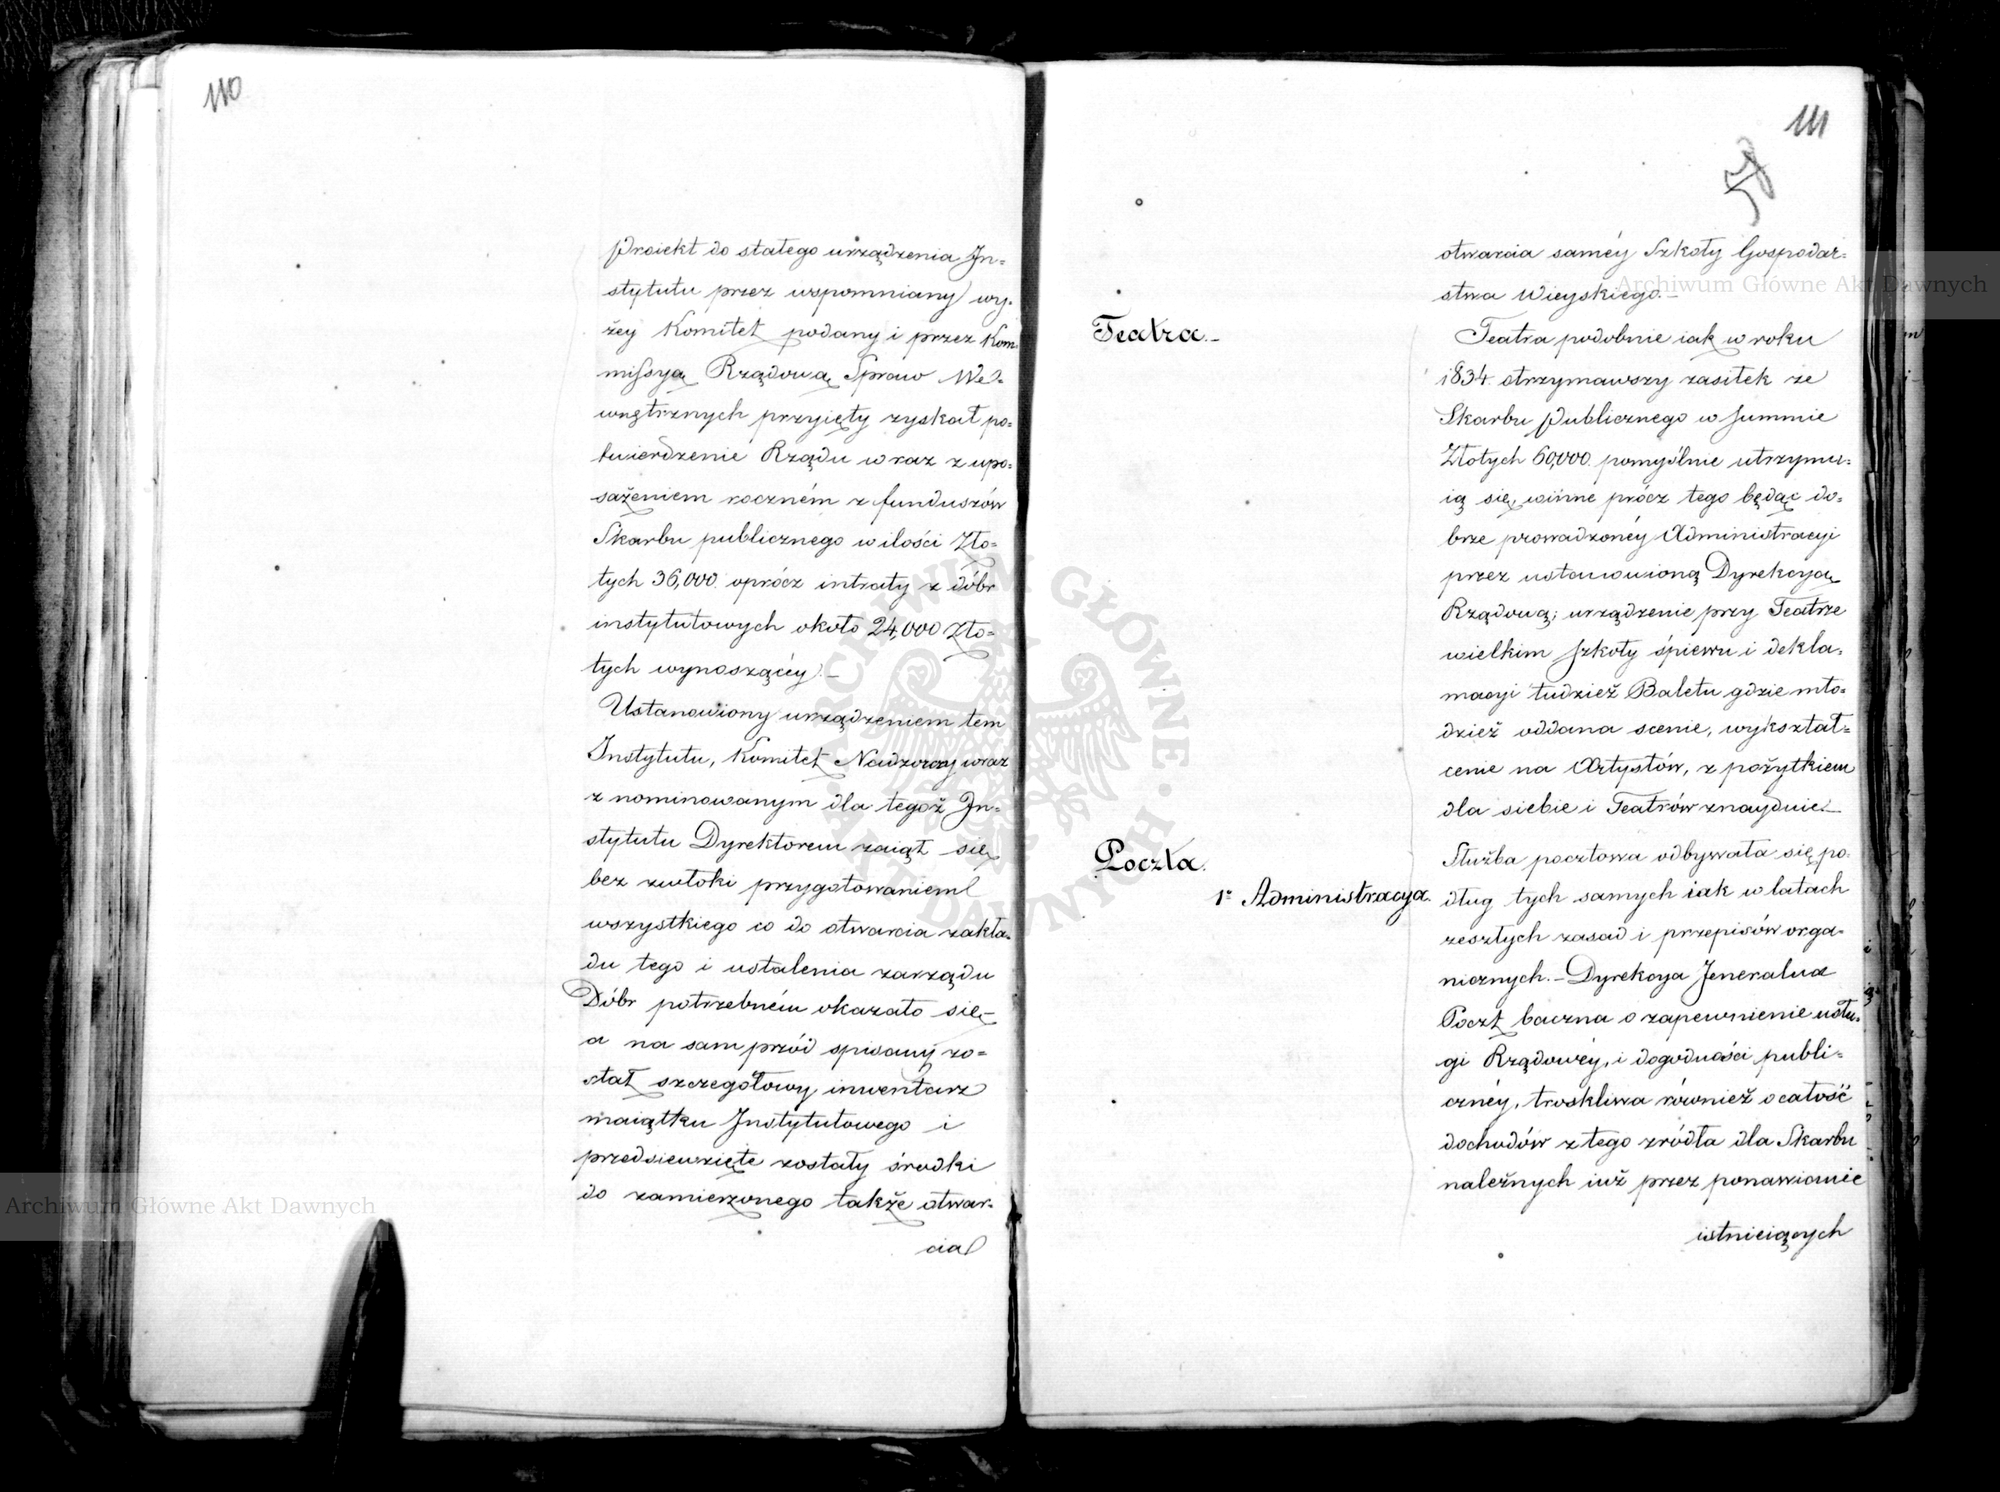 110
Proiekt do stałego urządzenia In=
stytutu przez wspomniany wy=
żey Komitet podany i przez Kom=
missyą Rządową Spraw We=
wnętrznych przyięty zyskał po=
twierdzenie Rządu wraz z upo=
sażeniem roczném z funduszów
Skarbu publicznego w ilości Zło=
tych 36,000 oprócz intraty z dóbr
instytutowych około 24,000 Zło=
tych wynoszącéy.–
Ustanowiony urządzeniem tem
Instytutu, Komitet Nadzorczy wraz
z nominowanym dla tegoż In=
stytutu Dyrektorem zaiął się
bez zwłoki przygotowaniem
wszystkiego co do otwarcia zakła=
du tego i ustalenia zarządu
Dóbr potrzebném okazało się
a na sam przód spisany zo=
stał szczegółowy inwentarz
maiątku Instytutowego i
przedsiewzięte zostały środki
do zamierzonego także otwar=
cia
111
57
otwarcia saméy Szkoły Gospodar=
stwa Wieyskiego.–
Teatra.–
Teatra podobnie iak w roku
1834 otrzymawszy zasiłek ze
Skarbu Publicznego w summie
Złotych 60,000 pomyślnie utrzymu=
ią się, winne prócz tego będąc do=
brze prowadzonéy Administracyi
przez ustanowioną Dyrekcyą
Rządową; urządzenie przy Teatrze
wielkim szkoły śpiewu i dekla=
macyi tudzież Baletu gdzie mło=
dzież oddana scenie, wykształ=
cenie na Artystów, z pożytkiem
dla siebie i Teatrów znayduie.–
Poczta.
1° Administracya.
Służba pocztowa odbywała się po=
dług tych samych iak w latach
zeszłych zasad i przepisów orga=
nicznych.– Dyrekcya Jeneralna
Poczt baczna o zapewnienie usłu=
gi Rządowéy, i dogodności publi=
cznéy, troskliwa również o całość
dochodów z tego źródła dla Skarbu
należnych iuż przez ponawianie
istnieiących
Archiwum Główne Akt Dawnych
Archiwum Główne Akt Dawnych
ARCHIWUM GŁÓWNE AKT DAWNYCH